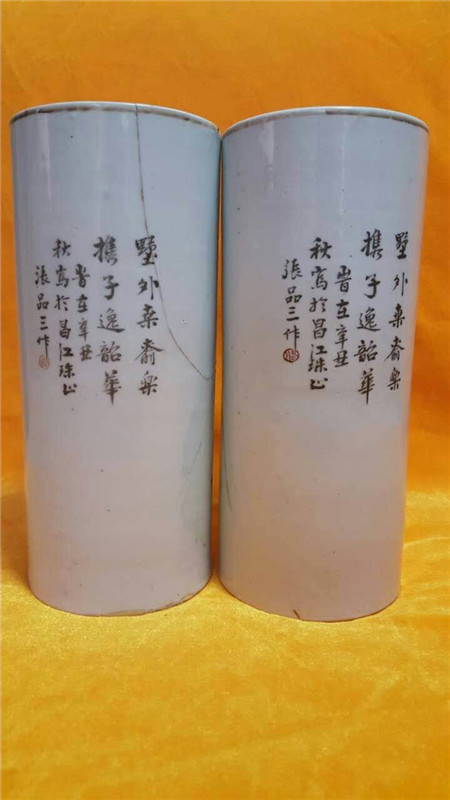 墅外桑齋樂
携子逸韶華
旹在辛丑
秋寫於昌江珠山
張品三作
墅外桑齋樂
携子逸韶華
旹在辛丑
秋寫於昌江珠山
張品三作